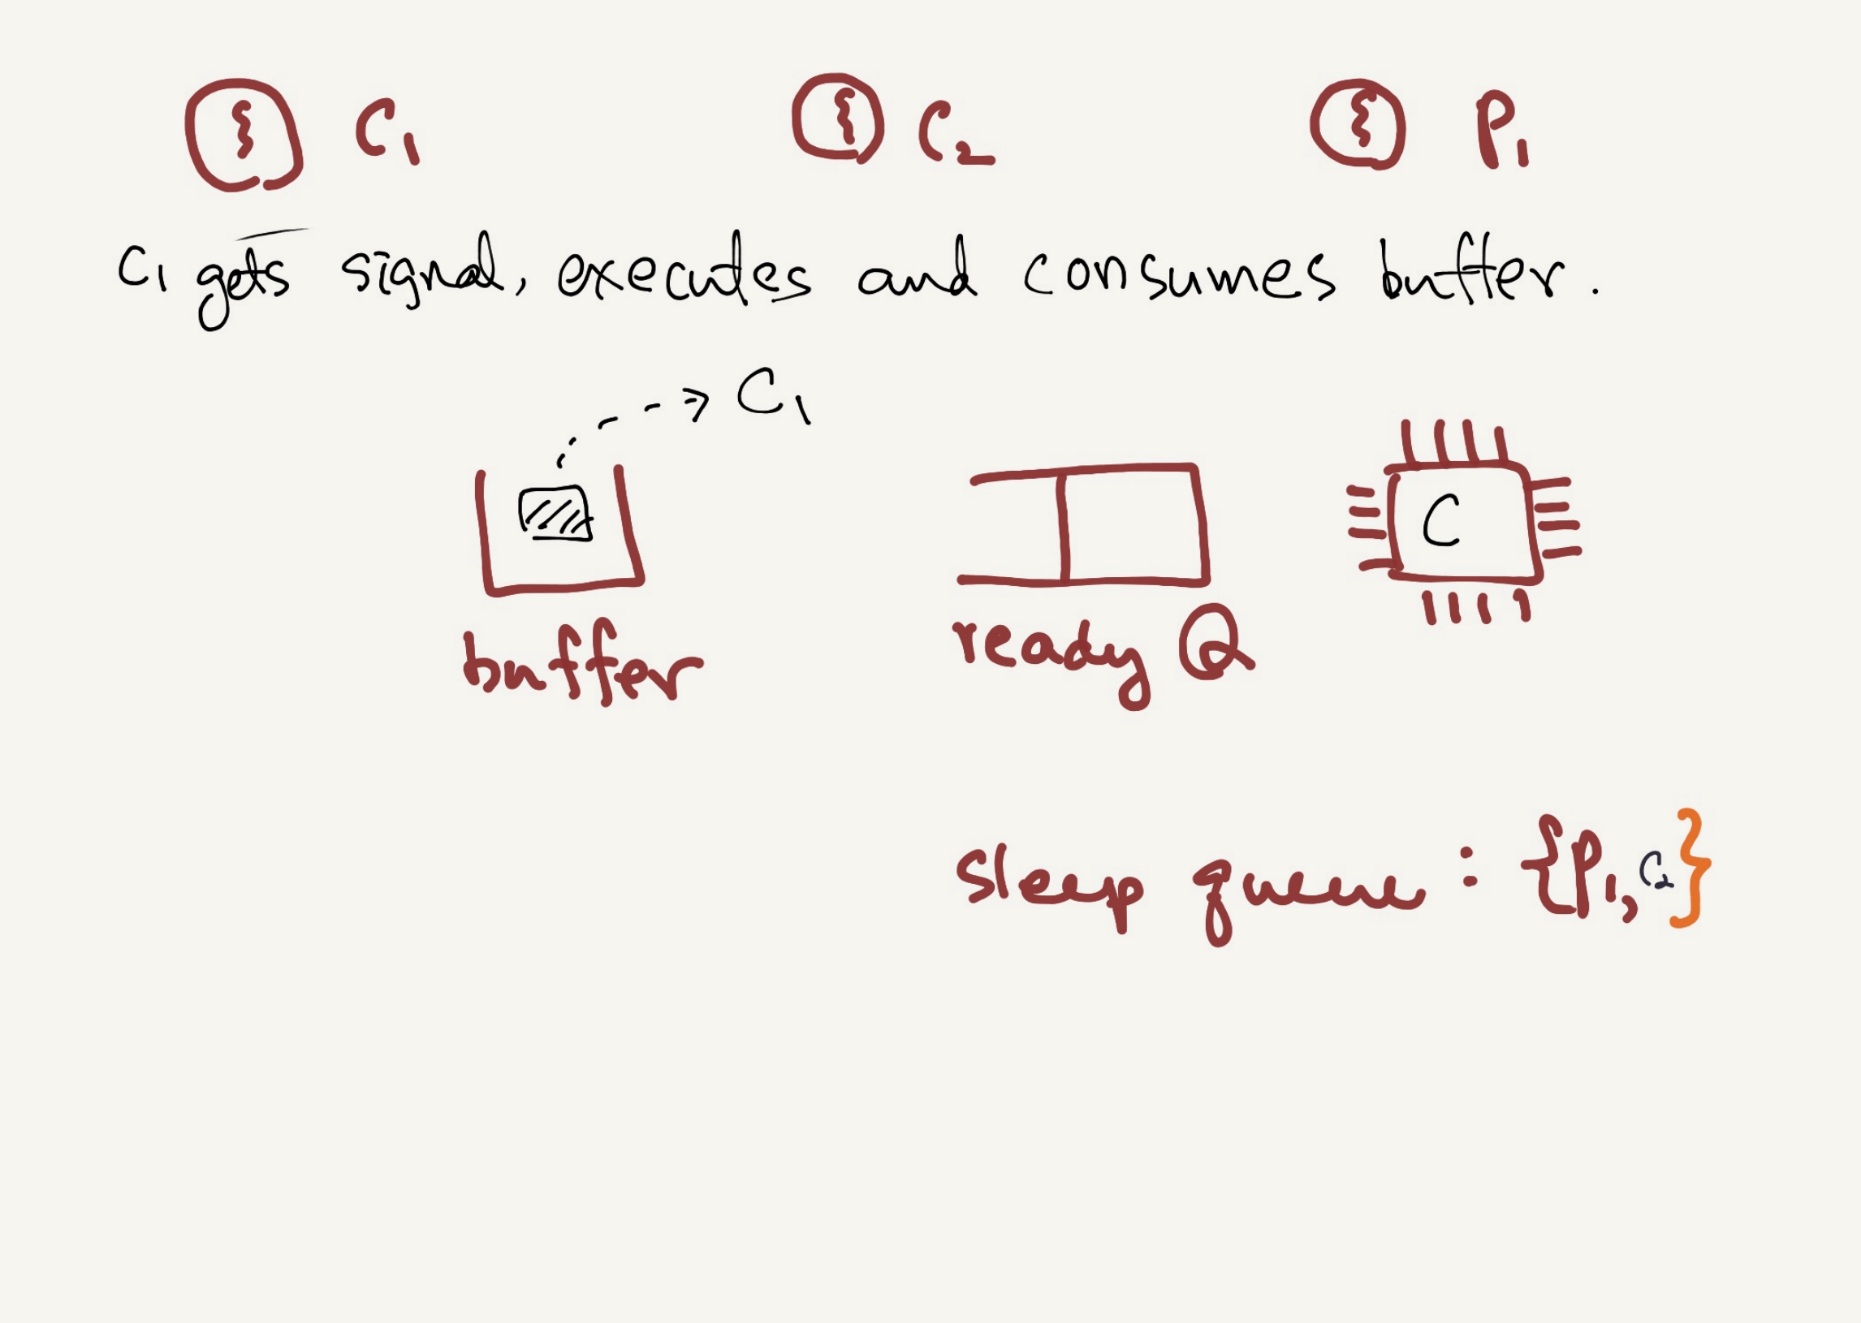 C₁ C₂ P₁
C₁ gets signal, executes and consumes buffer.
C₁
C
buffer
ready Q
sleep queue : {P₁, C₂}